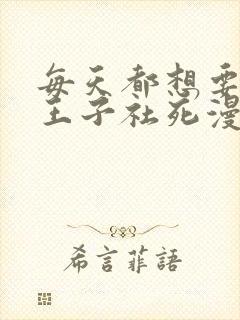 每天都想要
王子社死漫
希言菲語